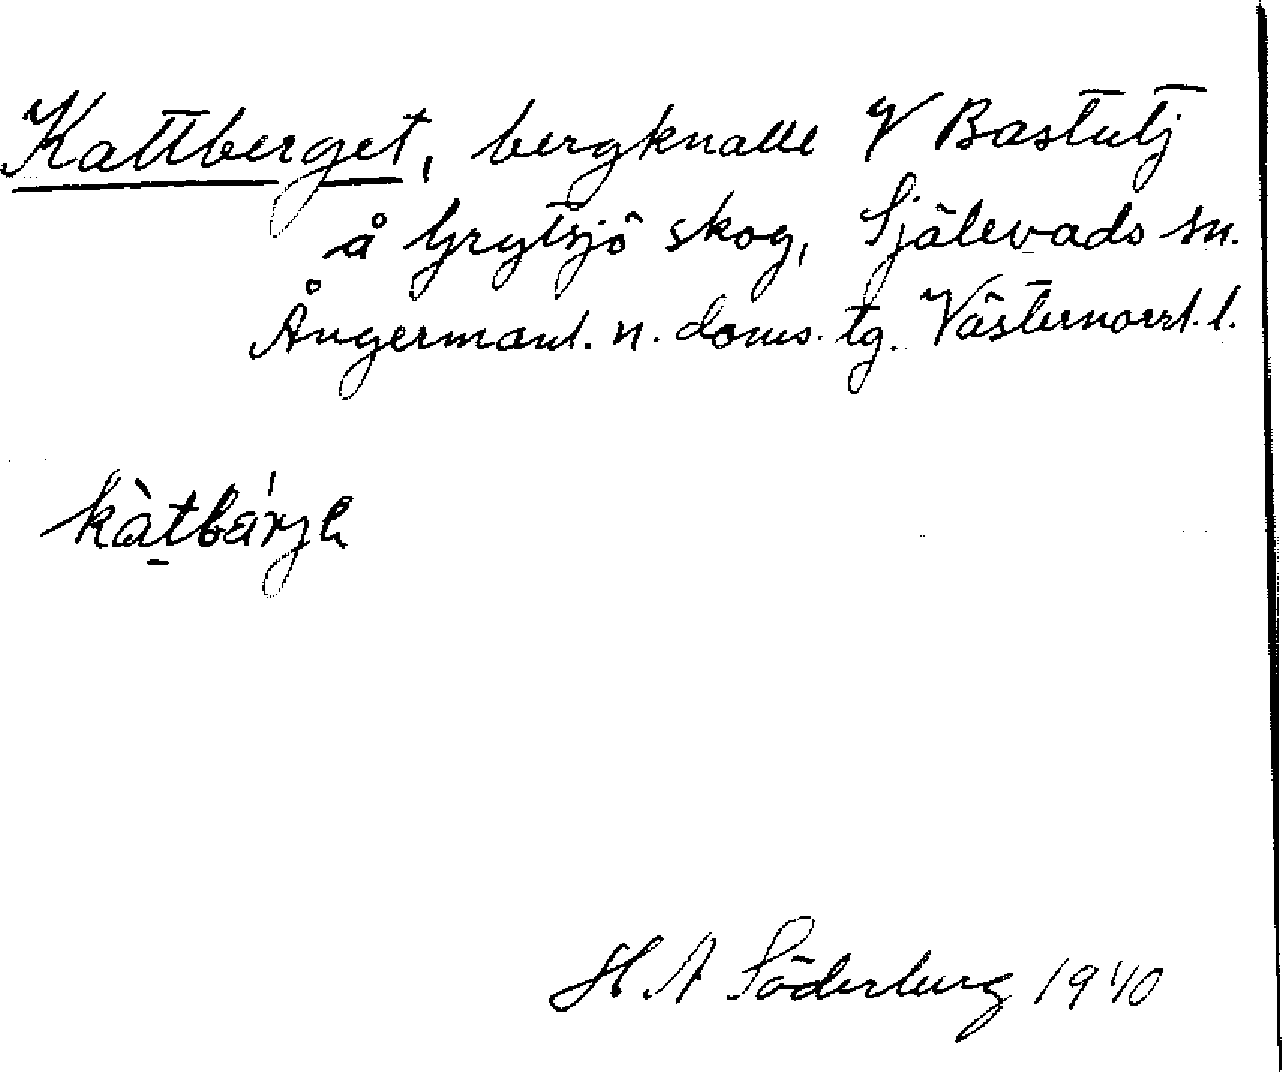 Kattberget, bergknalle V Bastutj
å Grytsjö skog, Själevads sn.
Ångermanl. n. doms. tg. Västernorrl. l.
kàtbárje
H A Söderberg 1940